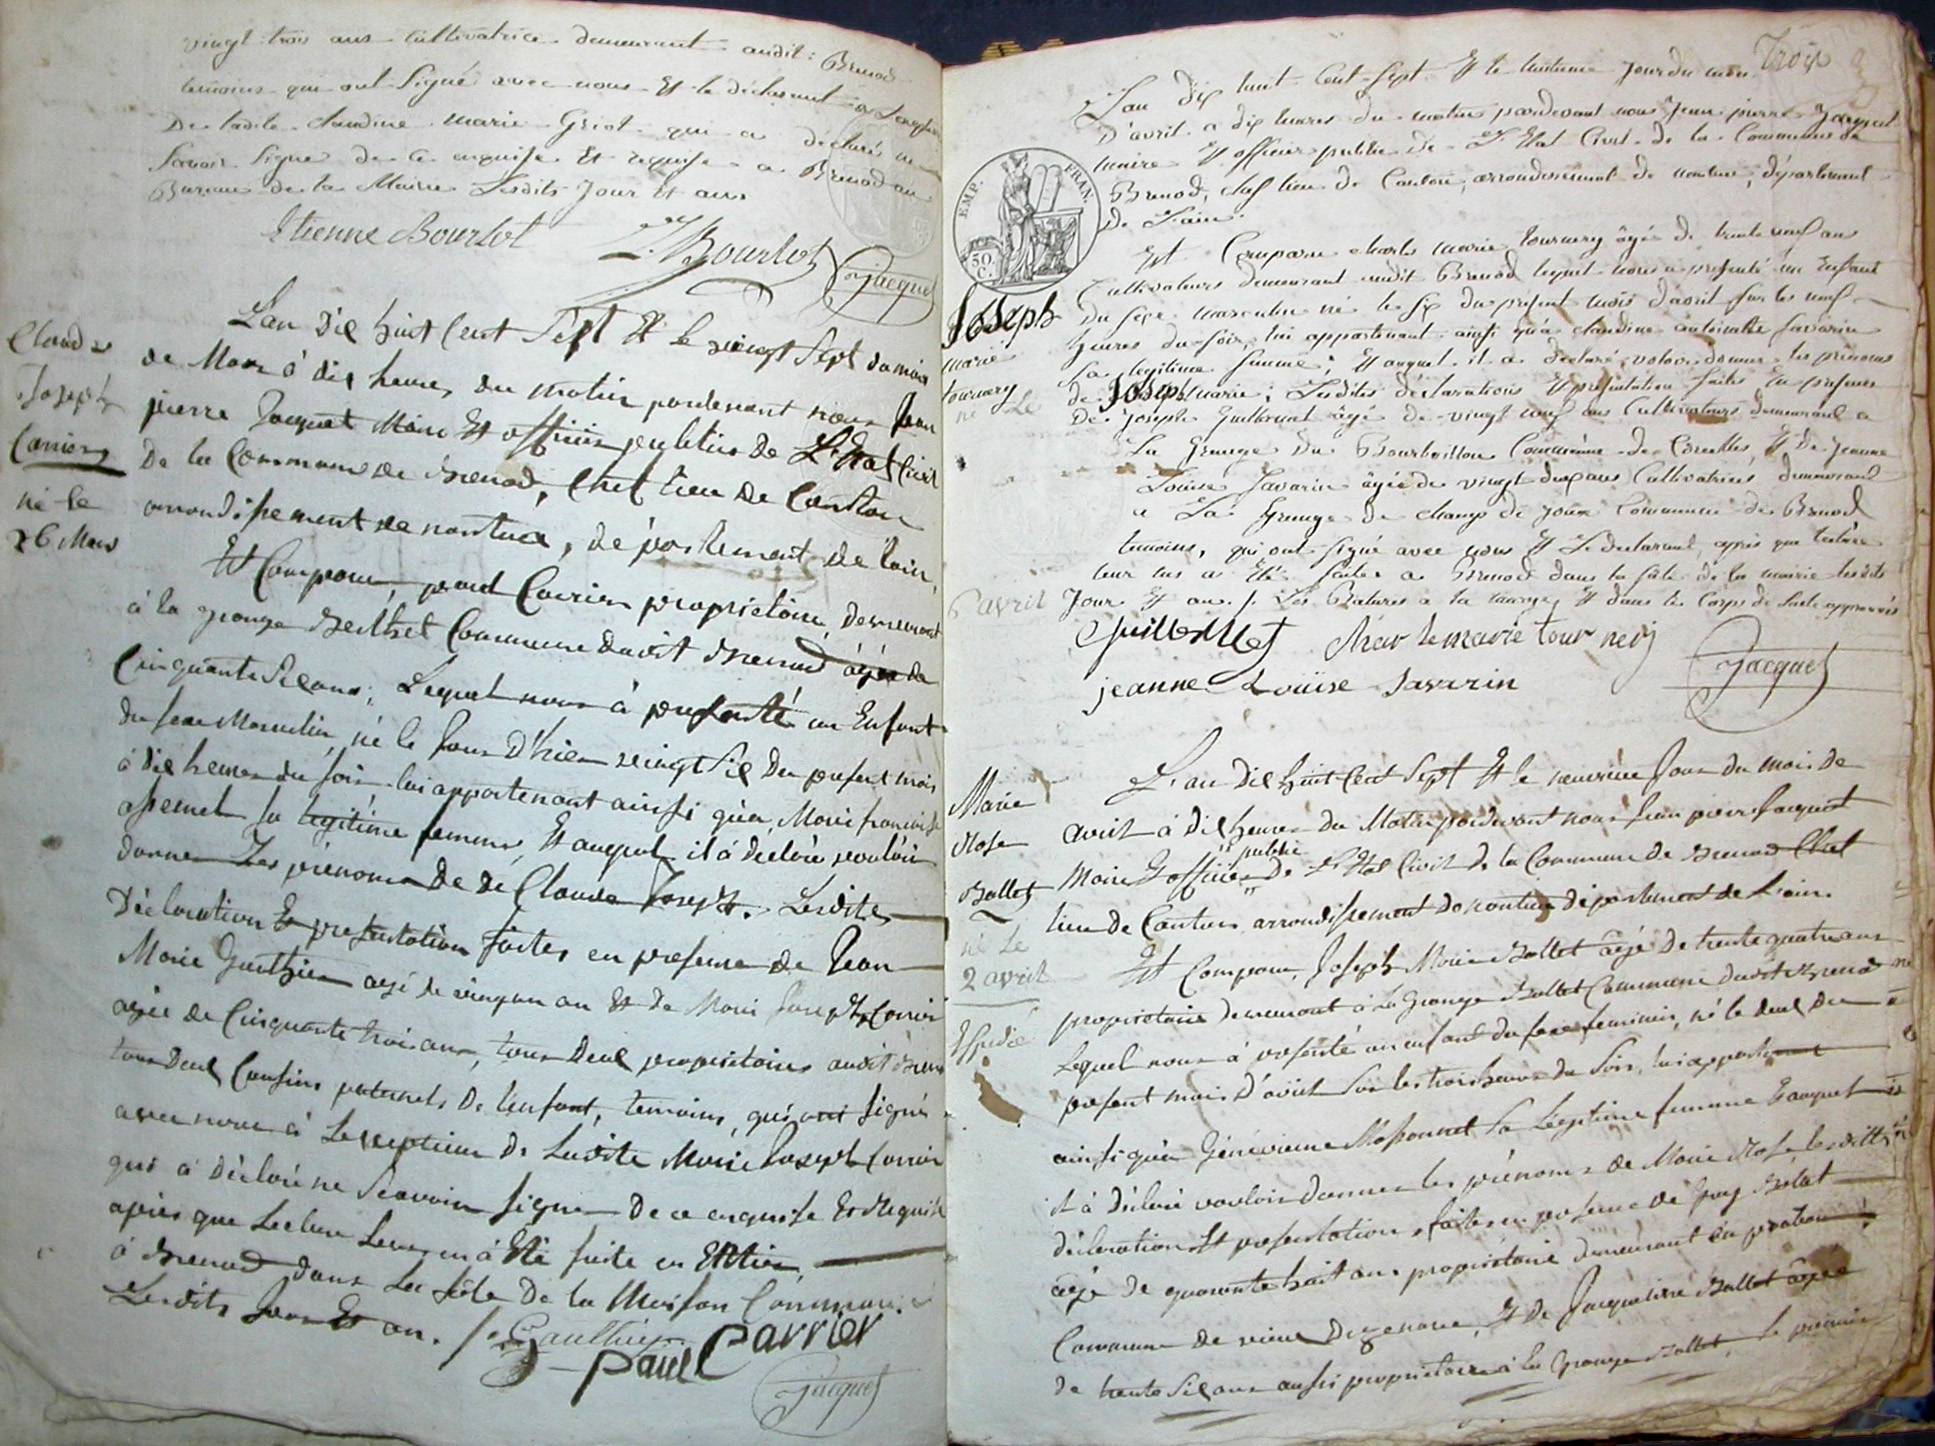 vingt trois ans cultivatrice demeurant audit Brenod
temoins qui ont signé avec nous Et le déclarant a
De ladite claudine marie Griot qui a déclaré ne
Savoir Signer de ce enquise Et requise a Brenod au
Bureau de la Mairie Lesdits Jour Et an.
Etienne Bourlot
Bourlot
Jacquet
Claude
Joseph
Carrier
né le
26 Mars
L'an Dix huit Cent Sept Et le vingt Sept du mois
de Mars à dix heures du matin pardevant nous Jean
pierre Jacquet Maire Et officier public de L'Etat Civil
De la Commune de Brenod, Chef lieu de Canton
arrondissement de nantua, département de l'ain,
Et Comparu, paul Carrier propriétaire, demeurant
à la grange Berthet Commune dudit Brenod âgée de
Cinquante Six ans; Lequel nous à presenté un Enfant
du sexe Masculin, né le Jour D'hier vingt Six Du present mois
à dix heures du soir lui appartenant ainsi qu'a Marie francoise
sa legitime femme, Et auquel il à declaré vouloir
donner Les prénoms de de Claude Joseph. Lesdites
Déclaration Et presentation faites en presence de Jean
Marie Gauthier agé de an Et de Marie Joseph Carrier
agée de Cinquante trois ans, tous Deux propriétaires audit Brenod
tous Deux Cousins paternels De l'enfant, temoins, qui ont signé
avec nous à L'exception De Ladite Marie Joseph Carrier
qui à déclaré ne Scavoir signer De ce enquise Et Requise
après que Lecture Leur en à Eté faite en Entier,
à Brenod dans La Sale De la Maison Commune.
Lesdits Jour Et an.
Gauthier
paul Carrier
Jacquet
Trois
L'an dix huit Cent Sept Et le huitieme Jour du mois
D'avril a dix heures du matin pardevant nous Jean pierre Jacquet
maire Et officier public de L'Etat Civil de la Commune de
Brenod, chef lieu de Canton, arrondissement de nantua, département
De L'ain.
EMP. FRAN.
50. C.
Joseph
marie
tournery
né Le
6 avril
Est Comparu charles marie tournery âgé de trente neuf ans
Cultivateur demeurant audit Brenod lequel nous a presenté un Enfant
du sexe masculin né le six du present mois d'avril sur les neuf
heures du soir, lui appartenant ainsi qu'a claudine antoinette Savarin
sa legitime femme; Et auquel il a déclaré vouloir donner les prénoms
de Joseph marie; Lesdites déclarations Et presentation faites En presence
De Joseph Guillermet âgé de vingt neuf ans Cultivateur demeurant a
La Grange du Bourbaillon Commune de Corcelles, Et De Jeanne
Louise Savarin âgée de vingt ans Cultivatrice demeurant
a La Grange de champ de Joux Commune de Brenod
temoins, qui ont signé avec nous Et Le declarant, après que lecture
leur en a Eté faite a Brenod dans la sale de la mairie lesdits
Jour Et an. Les Ratures a la marge Et dans le Corps de l'acte approuvés
Guillermet
Char le marie tour neri
jeanne Louise Savarin
Jacquet
Marie
Rose
Ballet
né Le
2 avril
L'an Dix huit Cent Sept Et le neuvième Jour du mois de
avril à dix heures du Matin pardevant nous Jean pierre Jacquet
public
Maire Et officier De L'Etat Civil de la Commune de Brenod Chef
lieu de Canton arrondissement de nantua département de L'ain.
Et Comparu, Joseph Marie Ballet âgé De trente quatre ans
propriétaire demeurant à la Grange Ballet Commune dudit Brenod
Lequel nous à presenté un enfant du sexe feminin, né le deux du
present mois D'avril sur les trois heures du Soir, lui appartenant
ainsi qu'a Génevieve sa Légitime femme Et auquel
il à déclaré vouloir donner les prénoms de Marie Rose, lesdittes
déclaration Et presentation faites en presence de Guy
agé de quarante huit ans propriétaire demeurant
Commune de vieux Dizenave, Et De Jacqueline Ballet âgée
de trente Six ans aussi propriétaire à la Grange Ballet, le premier